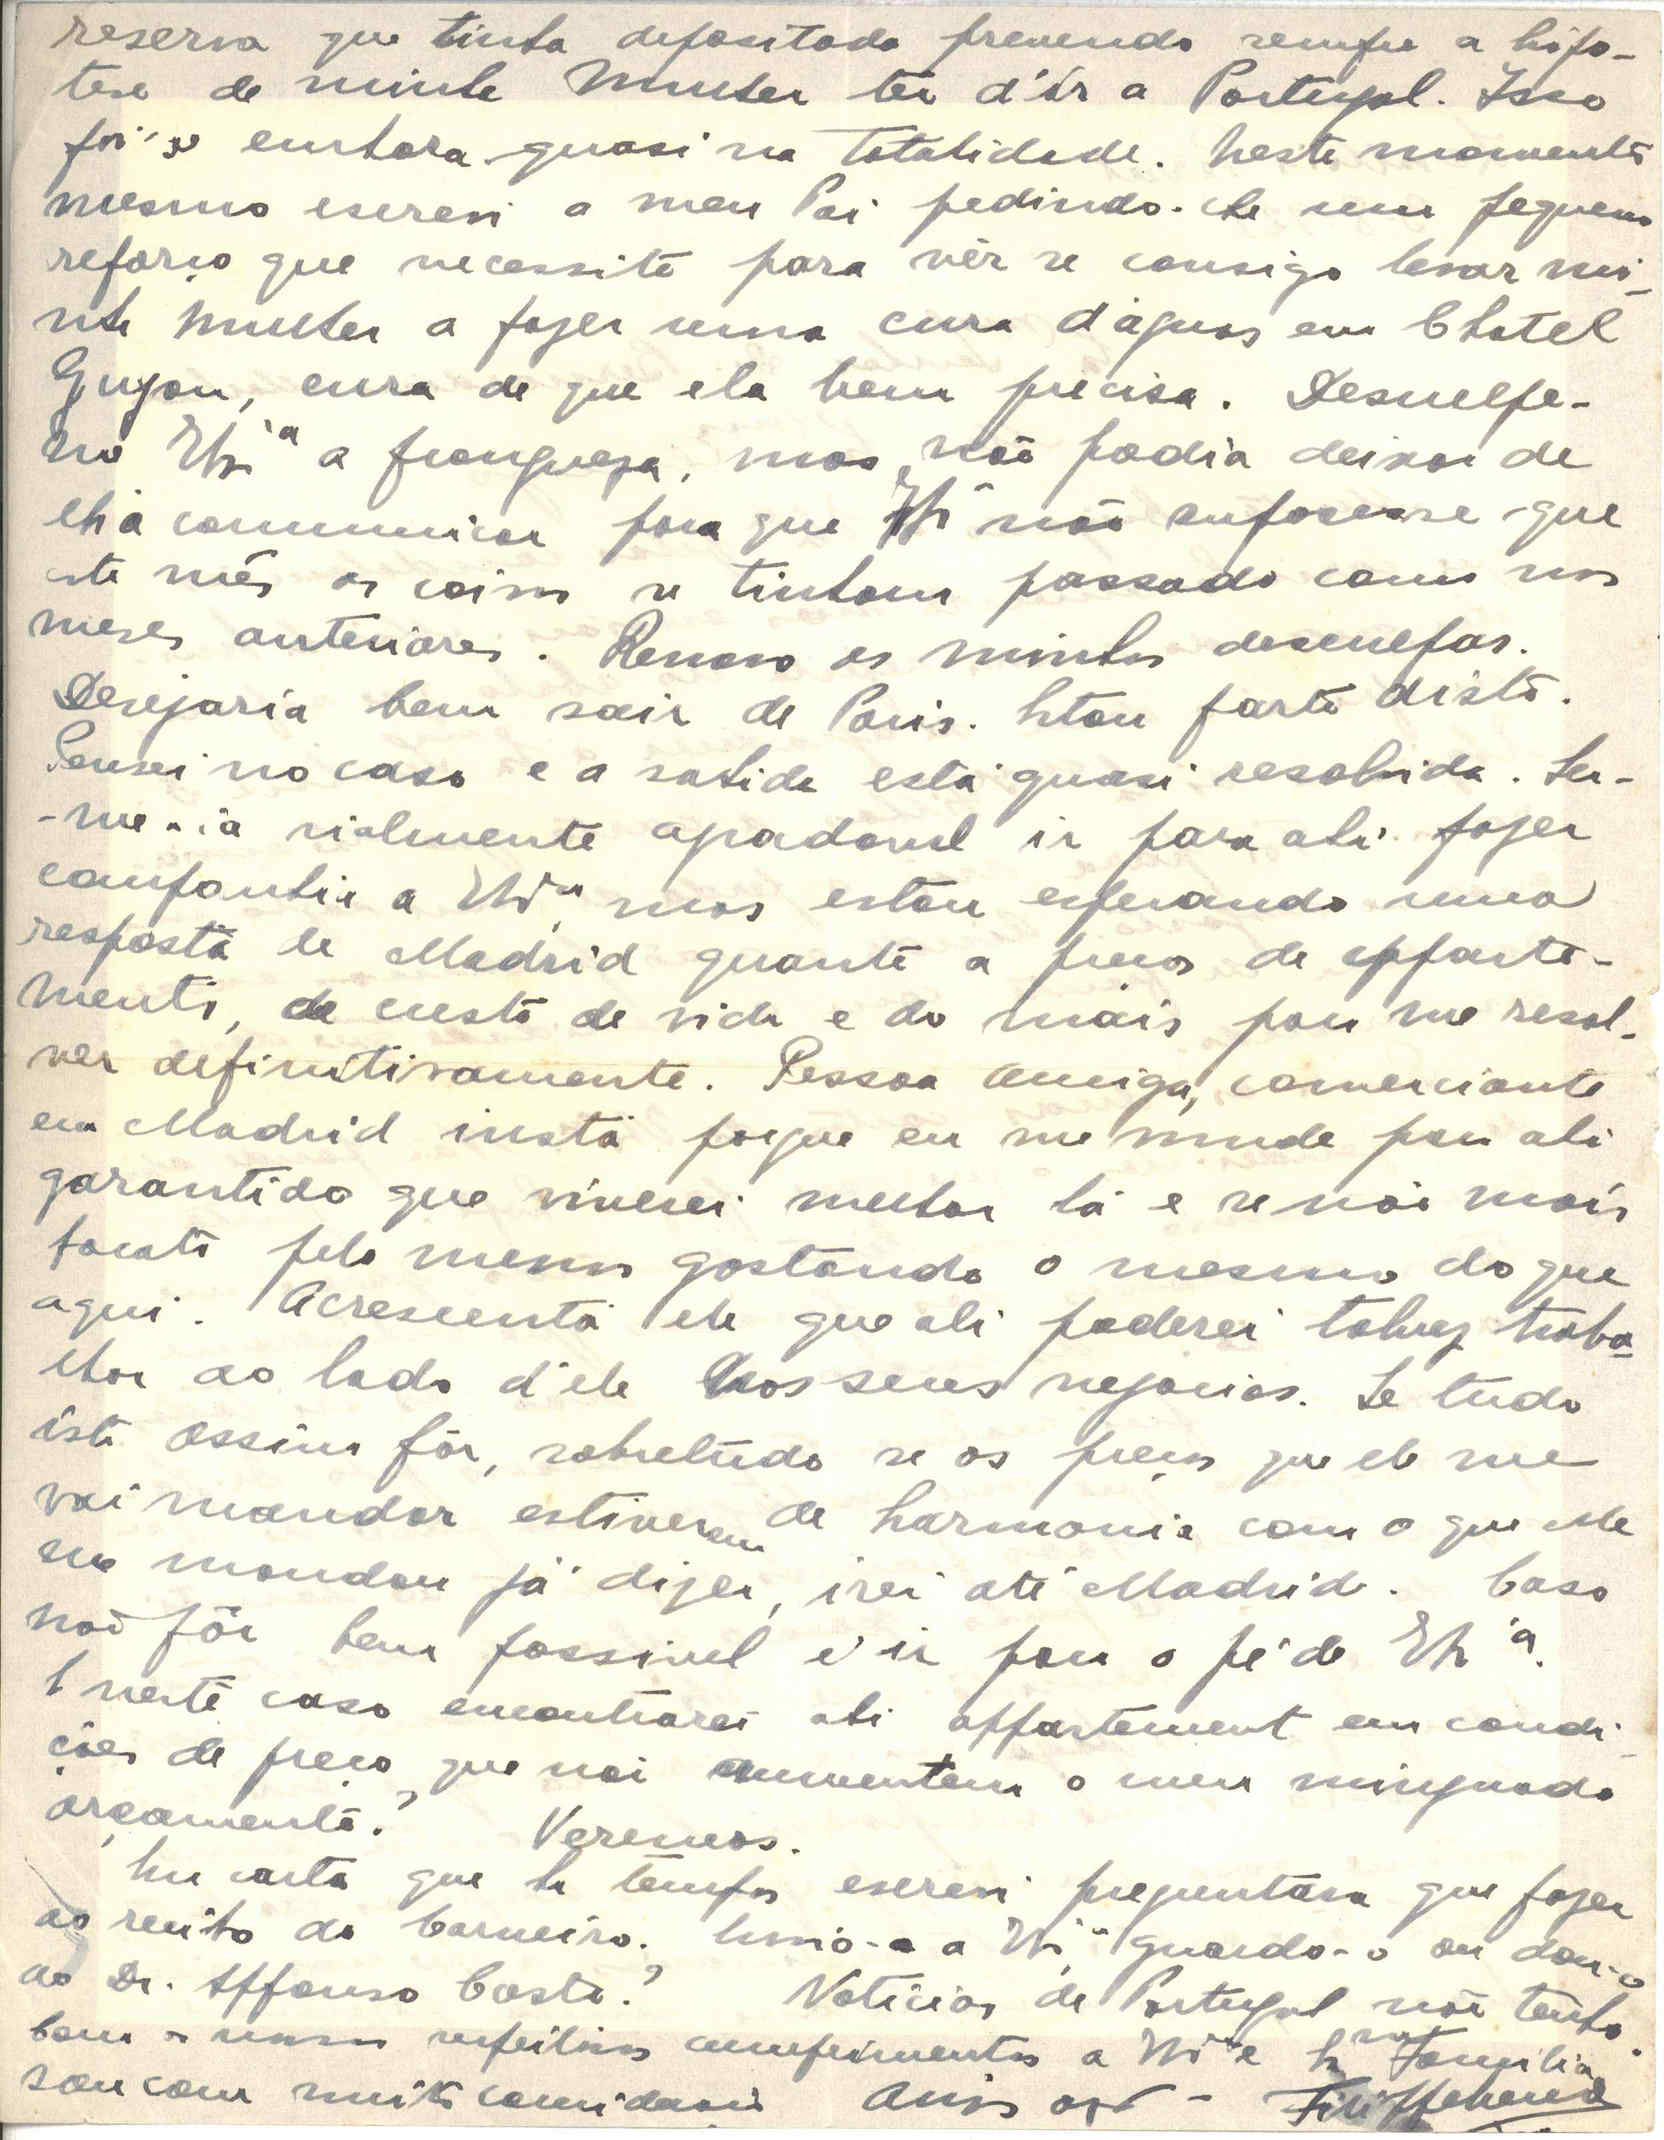 reserva que tinha depositado prevendo sempre a hipo-
tese de minha Mulher ter d'ir a Portugal. Isso
foi-se embora quasi na totalidade. Neste momento
mesmo escrevi a meu Pai pedindo-lhe um pequeno
reforço que necessito para vêr se consigo levar mi-
nha Mulher a fazer uma cura d'aguas em Chatel
Guyon, cura de que ela bem precisa. Desculpe-
me V. Exª a franqueza, mas não podia deixar de
lh'a comunicar para que V. Exª não supozesse que
este mês as coisas se tinham passado como nos
meses anteriores. Renovo as minhas desculpas.
Desejaria bem sair de Paris. Estou farto disto.
Pensei no caso e a sahida está quasi resolvida. Ser-
-me-ia rialmente agradavel ir para ahi fazer
companhia a V. Exª, mas estou esperando uma
resposta de Madrid quanto a preços de apparte-
ments, de custo de vida e do mais para me resol-
ver definitivamente. Pessoa amiga, comerciante
em Madrid insta porque eu me mude para ali
garantido que viverei melhor lá e se não mais
barato pelo menos gastando o mesmo do que
aqui. Acrescenta ele que ali poderei talvez traba-
lhar ao lado d'ele nos seus negocios. Se tudo
isto assim fôr, sobretudo se os preços que ele me
vai mandar estiverem de harmonia com o que ele
me mandou já dizer, irei até Madrid. Caso
não fôr bem possivel é ir para o pé de V. Exª.
E neste caso encontrarei ahi appartement em condi-
ções de preço que não aumentem o meu minguado
orçamento? Veremos.
Na carta que ha tempos escrevi preguntava que fazer
ao recibo do Carneiro. Envio-o a V. Exª, guardo-o ou dou-o
ao Dr. Affonso Costa? Noticias de Portugal não tenho.
Com os nossos respeitosos cumprimentos a V. Exª e Exma Familia
sou com muita consideração Amigo